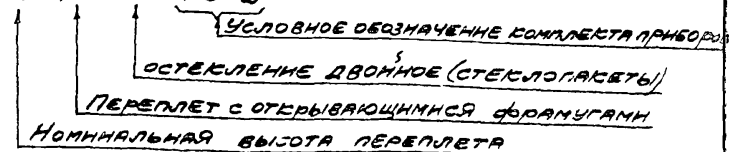 Условное обозначение комплекта приборов
остекление двойное (стеклопакеты)
Переплет с открывающимися фрамугами
Номинальная высота переплета